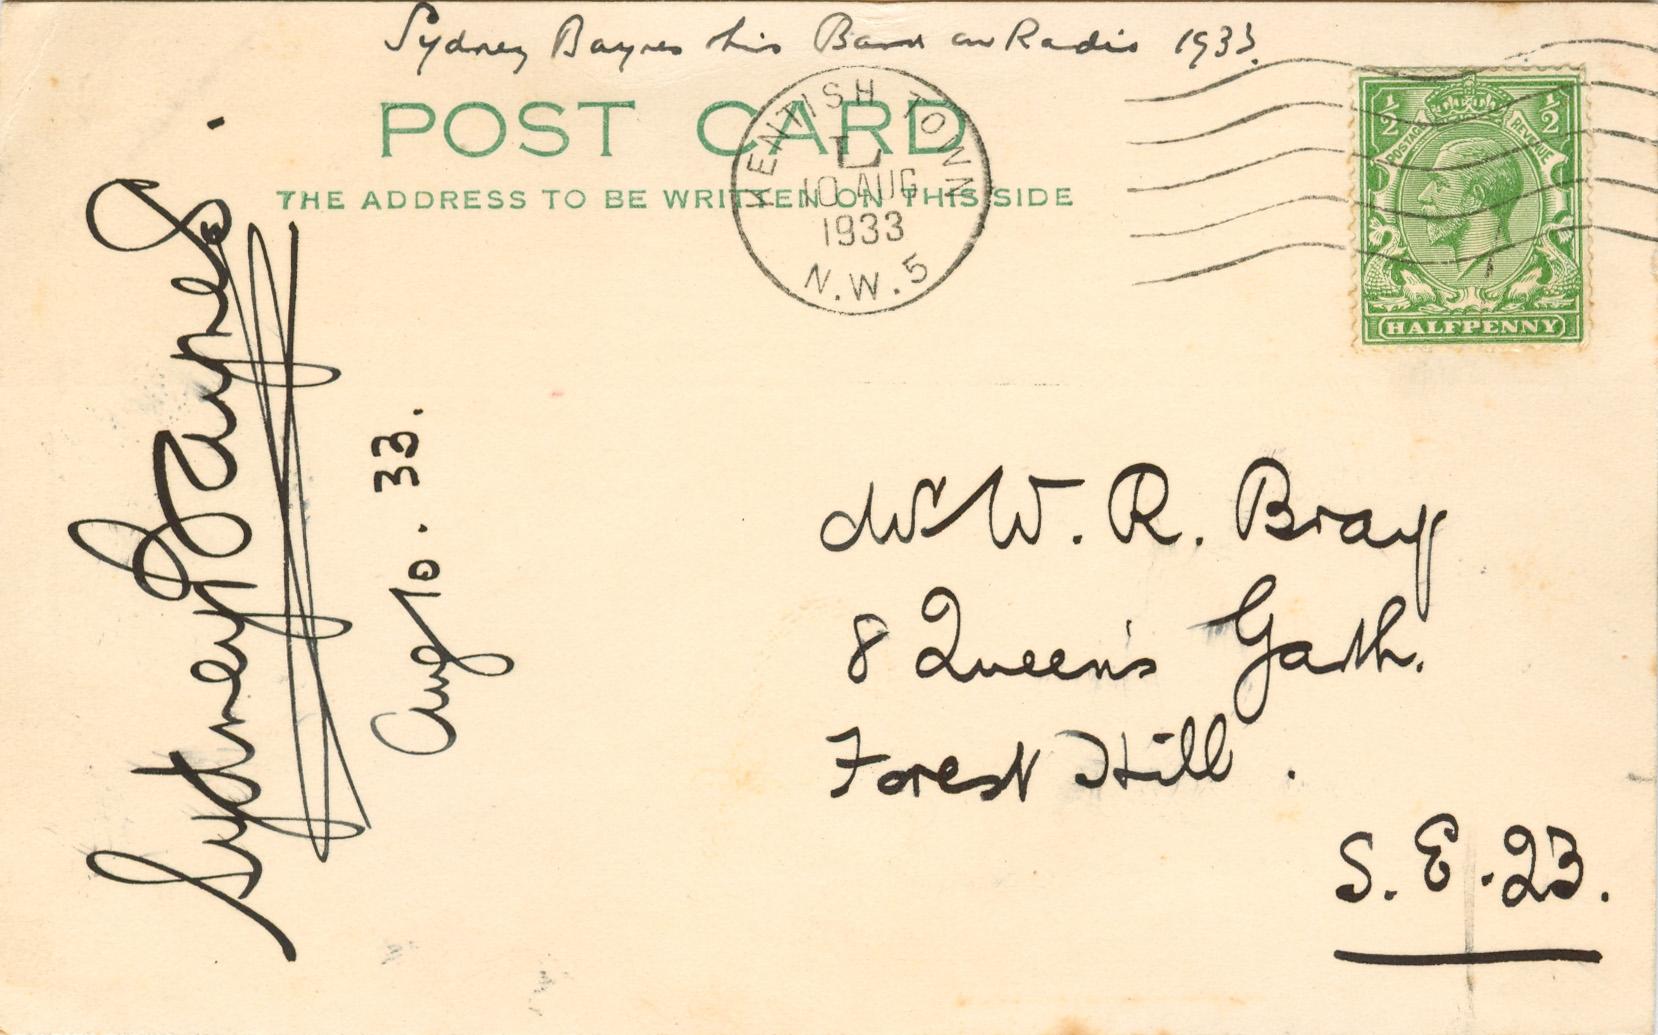 Sydney Baynes & his Band on Radio 1933.
POST CARD
THE ADDRESS TO BE WRITTEN ON THIS SIDE
KENTISH TOWN
L
10 AUG
1933
N.W.5
½ ½
POSTAGE REVENUE
HALFPENNY
Sydney Baynes.
Aug 10.33.
Mr W. R. Bray
8 Queen's Garth.
Forest Hill.
S.E.23.